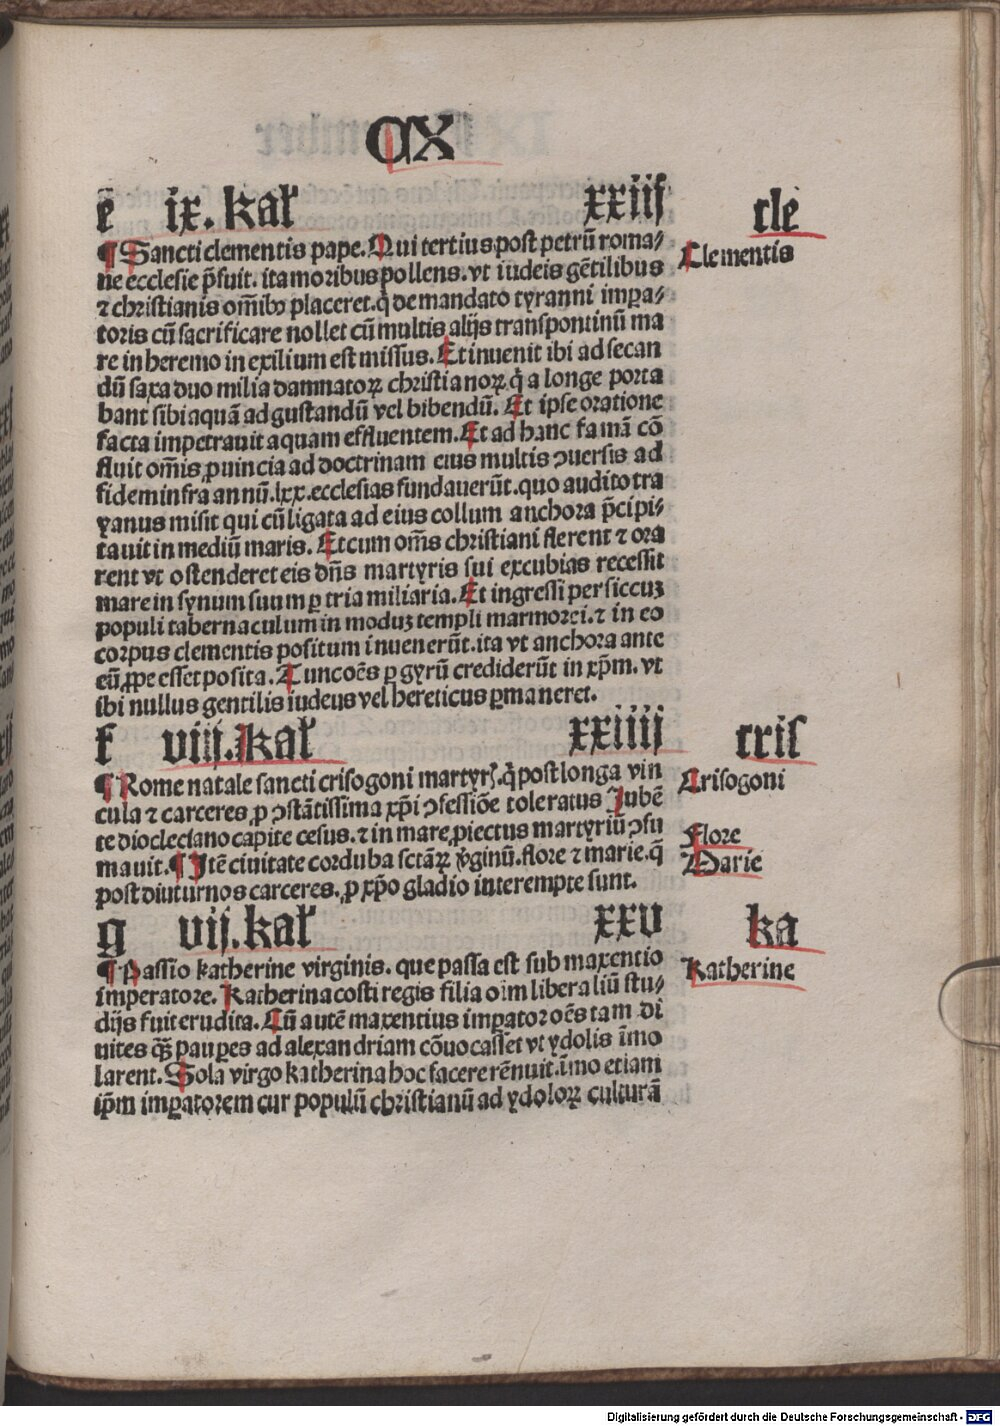 CX
e ix. kal' xxiij cle
¶ Sancti clementis pape. Qui tertius post petrū roma⸗ Clementis
ne ecclesie p̄fuit. ita moribus pollens. vt iudeis gētilibus
⁊ christianis om̄ibꝰ placeret. q̇ de mandato tyranni impa⸗
toris cū sacrificare nollet cū multis alijs transpontinū ma
re in heremo in exilium est missus. Et inuenit ibi ad secan
dū saxa duo milia damnatoꝝ christianoꝝ q̇ a longe porta
bant sibi aquā ad gustandū vel bibendū. Et ipse oratione
facta impetrauit aquam effluentem. Et ad hanc famā cō
fluit om̄is ꝓuincia ad doctrinam eius multis ꝯuersis ad
fidem infra annū. lxx. ecclesias fundauerūt. quo audito tra
yanus misit qui cū ligata ad eius collum anchora p̄cipi⸗
tauit in mediū maris. Et cum om̄s christiani flerent ⁊ ora
rent vt ostenderet eis dn̄s martyris sui excubias recessit
mare in synum suum ꝑ tria miliaria. Et ingressi per siccuꝫ
populi tabernaculum in moduꝫ templi marmorei. ⁊ in eo
corpus clementis positum inuenerūt. ita vt anchora ante
eū ꝓpe esset posita. Tunc oēs ꝑ gyrū crediderūt in xp̄m. vt
ibi nullus gentilis iudeus vel hereticus ꝑmaneret.
f viij. kal' xxiiij cris
¶ Rome natale sancti crisogoni martyrꝭ. q̇ post longa vin Crisogoni
cula ⁊ carceres ꝓ ꝯstātissima xp̄i ꝯfessiōe toleratus Iubē
te diocleciano capite cesus. ⁊ in mare ꝓiectus martyriū ꝯsu Flore
mauit. ¶ Itē ciuitate corduba sctāꝝ v̇ginū. flore ⁊ marie. q̄ Marie
post diuturnos carceres. ꝓ xp̄o gladio interempte sunt.
g vij. kal' xxv ka
¶ Passio katherine virginis. que passa est sub maxentio Katherine
imperatore. Katherina costi regis filia oim liberaliū stu⸗
dijs fuit erudita. Cū autē maxentius imꝑator oēs tam di
uites qꝫ̄ pauꝑes ad alexandriam cōuocasset vt ydolis īmo
larent. Sola virgo katherina hoc facere rēnuit. īmo etiam
ip̄m imꝑatorem cur populū christianū ad ydoloꝝ culturā
Digitalisierung gefördert durch die Deutsche Forschungsgemeinschaft - DFG